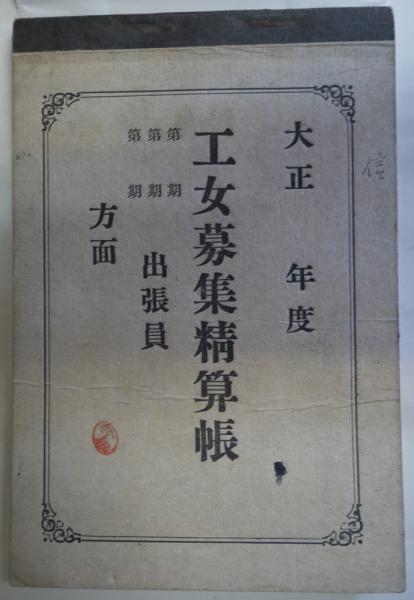 大正　年度
工女募集精算帳
第　期
第　期
第　期
出張員
方面
信